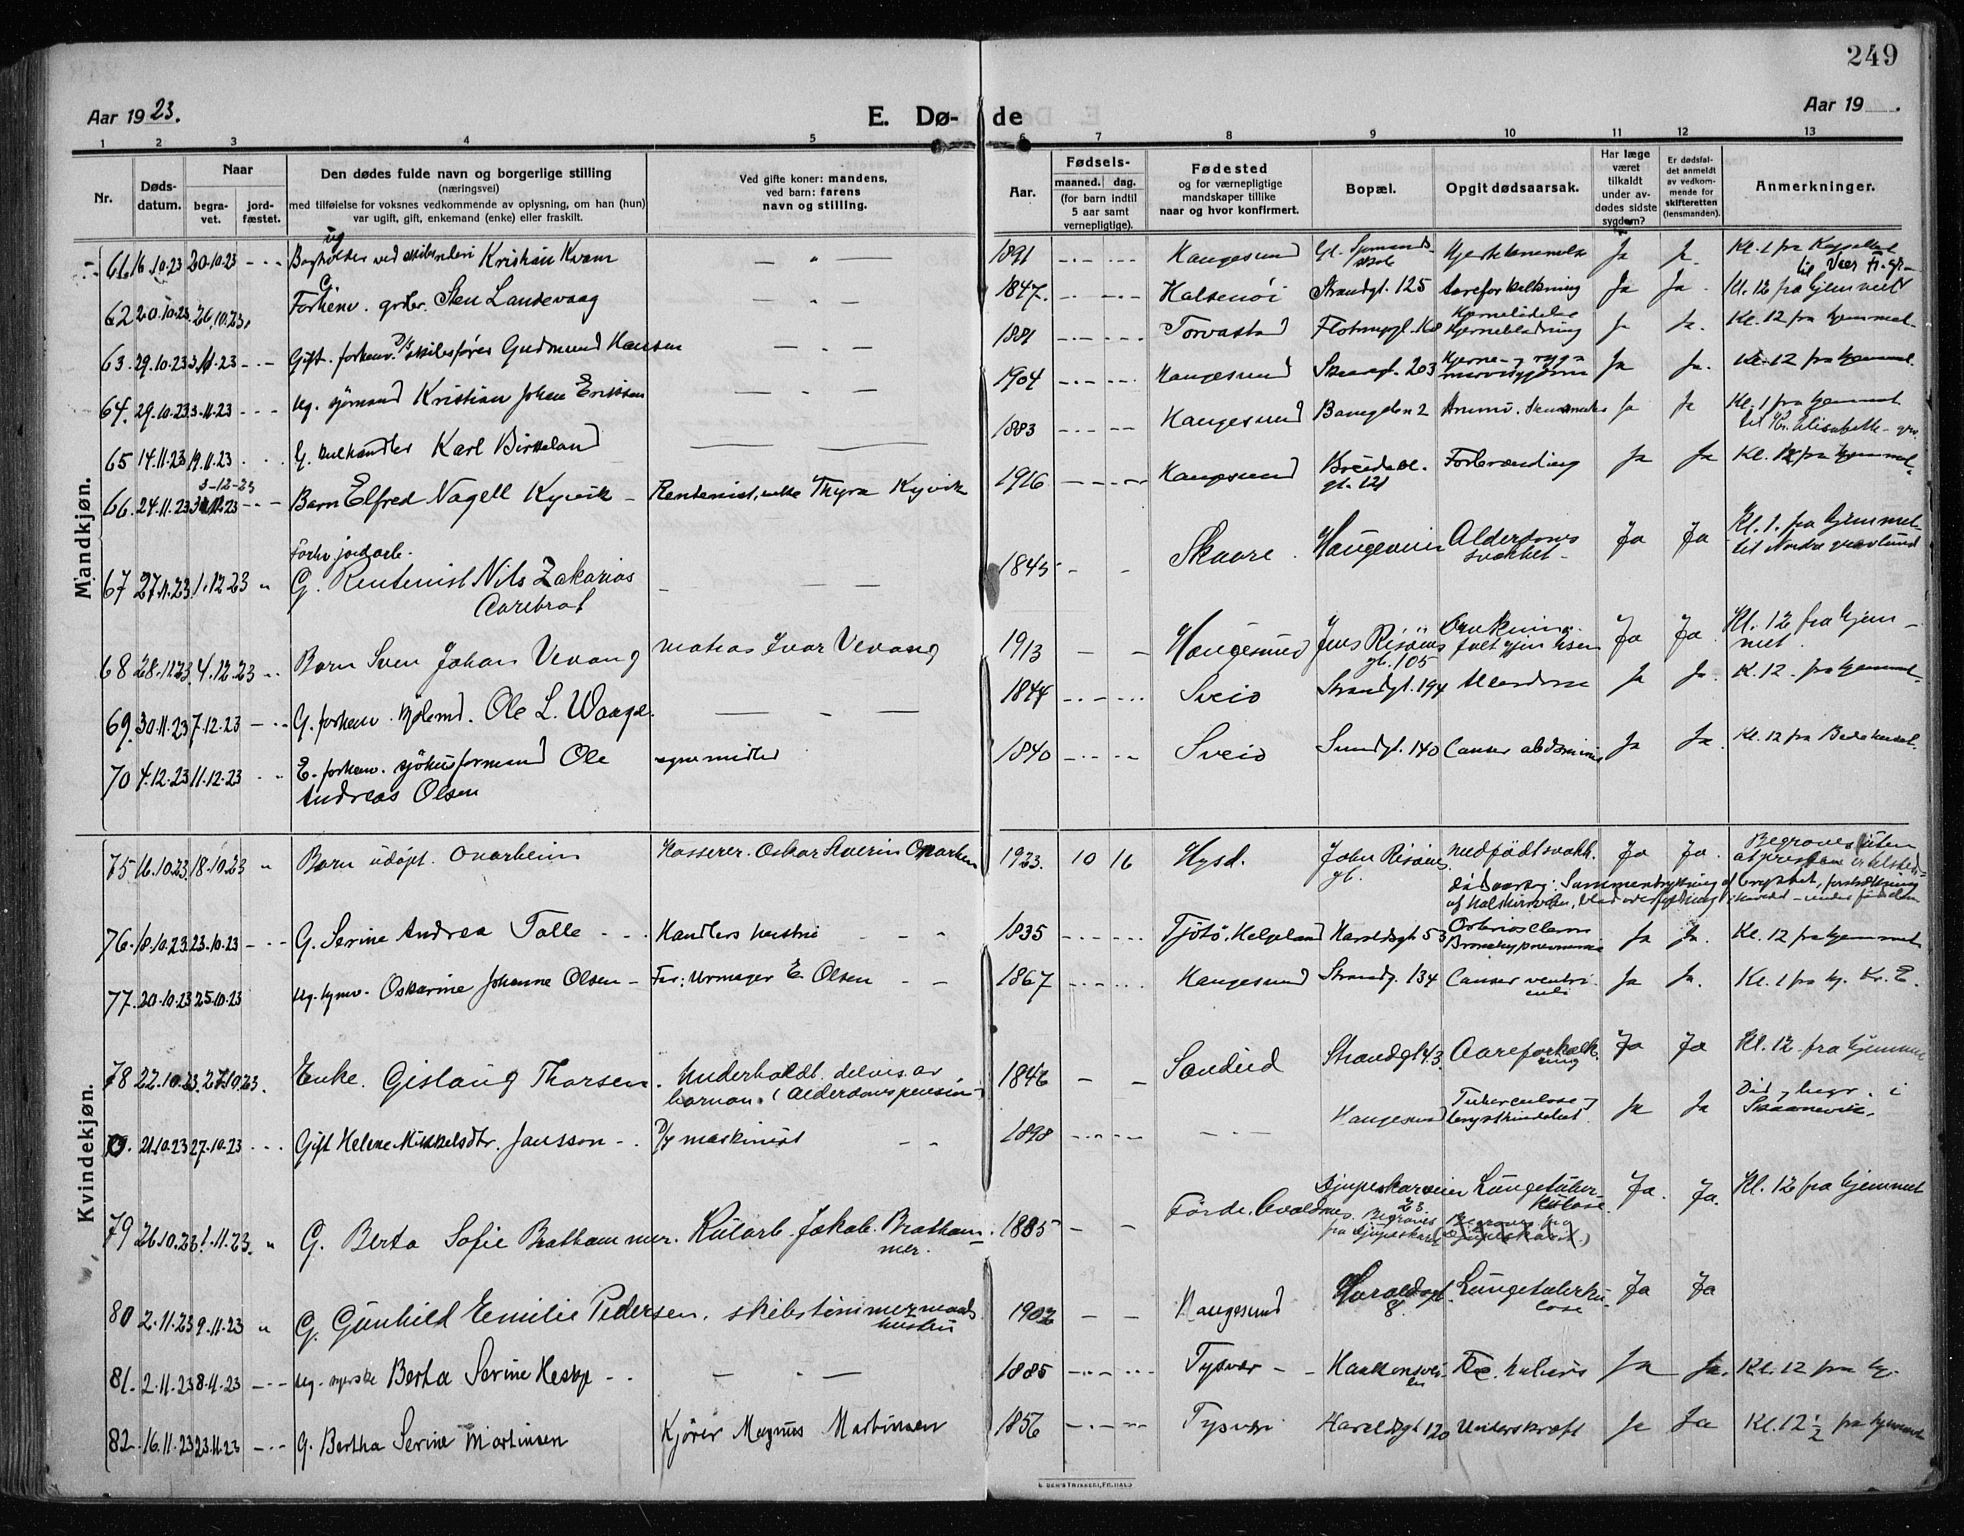 249
Aar 1923. E. Dø- de Aar 19 .
1 2 3 4 5 6 7 8 9 10 11 12 13
Nr. Døds-datum. Naar begra-vet. jord-fæstet. Den dødes fulde navn og borgerlige stilling (næringsvei) med tilføielse for voksnes vedkommende av oplysning, om han (hun) var ugift, gift, enkemand (enke) eller fraskilt. Ved gifte koner: mandens, ved barn: farens navn og stilling. Aar. Fødsels- maaned. dag. (for barn indtil 5 aar samt vernepligtige). Fødested og for værnepligtige mandskaper tillike naar og hvor konfirmert. Bopæl. Opgit dødsaarsak. Har læge været tilkaldt under av-dødes sidste sygdom? Er dødsfal-det anmeldt av vedkom-mende for skifteretten (lensmanden). Anmerkninger.
Mandkjøn.
61 16.10.23 20.10.23 ug Bogholder ved skibsrederi Kristian Kvam 1891 Haugesund Ja Ja. Kl. 1 fra Kapellet
62 20.10.23 26.10.23 G Forhenv. grdbr. Sten Landevaag 1847. Halsenöi Strandgt. 125 Aareforkalkning Ja Ja. Kl. 12 fra hjemmet
63. 29.10.23 Gift. forhenv. D/S skibsfører Gudmund Hansen 1881 Torvastad Hjernelidelse Hjerneblødning Ja Ja. Kl. 12 fra hjemmet.
64. 29.10.23 3.11.23 Ug. sjømand Kristian Johan Eriksen 1904 Haugesund 203 Hjerne- og ryg- Ja Ja. Kl. 12 fra hjemmet.
65 14.11.23 19.11.23 G. Karl Birkeland 1883 Haugesund 2 Ja Ja Kl. 1 fra hjemmet
66. 24.11.23 3-12-23 Barn Elfred Nagell Kyvik – Rentenist, enke Thyra Kyvik 1916 Haugesund Breidabl. gt. 121 Forbrænding Ja Ja Kl. 12 fra hjemmet.
67 27.11.23 1.12.23 Forhv. jordarb. G. Rentenist Nils Zakarias Aarebrot 1845 Skaare. Haugeveien Alderdoms svakhet Ja Ja Kl. 1. fra hjemmet til Nordre gravlund
68 28.11.23 4.12.23 Barn Sven Johan Vevang Matias Ivar Vevang 1913 Haugesund Jens Risöens gt. 105 Drukning, falt gjen isen Ja Ja. Kl. 12 fra hjemmet.
69. 30.11.23 7.12.23 G. forhenv. Ole L. Waage. 1844 Sveio Strandgt. 194 Alderdom Ja Ja. K. 12. fra hjemmet.
70 4.12.23 11.12.23 E. forhenv. sjöhusformand Ole Andreas Olsen egne midler 1840 Sveio Sundgt. 140 Cancer abdominis Ja Ja. Kl. 12 fra Bedehuset.
Kvindekjøn.
75 16.10.23. 18.10.23 Barn udøpt. Ovarheim Kasserer. Oskar Severin Ovarheim 1923. 10 16 Hgsd. John Risöens gt. medfødt svakh. Ja Ja. Begraves uten at presten er tilstede.
dødsaarsag: Sammentrykning af brystet,
76. 18.10.23. 23.10.23 G. Serine Andrea Tolle Handlers hustru 1835 Tjötö, Helgeland Haraldsgt. 53 Ja Ja. Kl. 12 fra hjemmet
77. 20.10.23 25.10.23 Ug. Oskarine Johanne Olsen – Far: Urmager E. Olsen 1867 Haugesund Strandg. 134 Cancer ventriculi Ja Ja. Kl. 1 fra hj. Kr. E.
78 22.10.23. 27.10.23. Enke. Gislaug Thorsen. Underholdt delvis av barnan. (Alderdomspension) 1846 Sandeid Strandgt. 43. Aareforkalkning Ja Ja Kl. 12 fra hjemmet
21.10.23 27.10.23 Gift Helene Mikkelsdtr. Jansson D/S maskinist 1898 Haugesund Tuberculose Ja Ja Død og begr. i Skaanevik.
79 26.10.23 1.11.23. G. Berta Sofie Brathammer. Kularb. Jakob Brathammer. 1885 Förde. Avaldsnes. Djupeskarveien 23. Begraves fra djupeskaret Lungetuberkulose. Ja. Ja. Kl. 12 fra hjemmet
80 2.11.23 9.11.23 G. Gunhild Emilie Pedersen. skibstömmermands hustru 1902 Haugesund Haraldsgt. 8. Lungetuberkulose Ja Ja
81. 2.11.23 8.11.23 Ug. syerske Berta Serine 1885 Tysvær Ja Ja. Kl. 12 fra hj.
82 16.11.23 23.11.23 G. Bertha Serine Martinsen Kjører Magnus Martinsen 1856 Tysvær Haraldsgt 120 Underskræft Ja Ja Kl. 12 ½ fra hjemmet